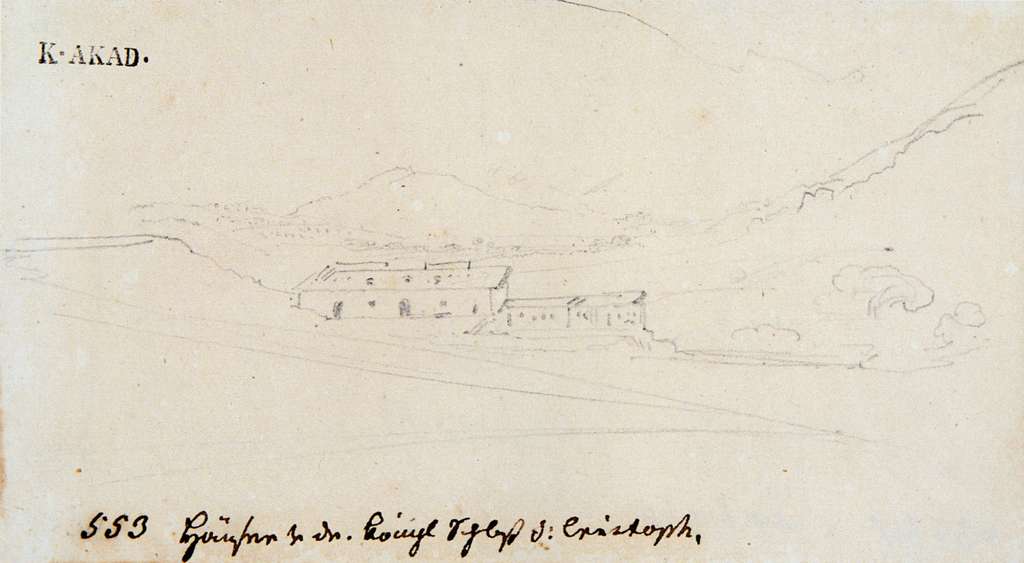 K·AKAD.
553 Häuser v dr. königl Schloß d: Cristoph.